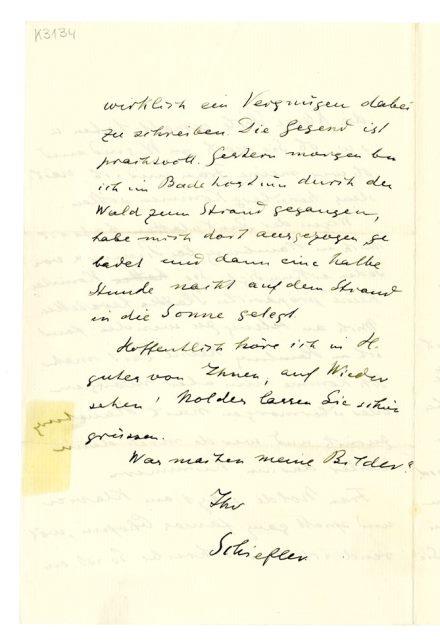 K3134
wirklich ein Vergnügen dabei
zu schreiben. Die Gegend ist
prachtvoll. Gestern morgen bin
ich im Badekostüm durch den
Wald zum Strand gegangen,
habe mich dort ausgezogen, ge
badet und dann eine halbe
Stunde nackt auf dem Strand
in die Sonne gelegt
Hoffentlich höre ich in H.
gutes von Ihnen, auf Wieder
sehen! Noldes lassen Sie schön
grüssen.
Was machen meine Bilder?
Ihr
Schiefler